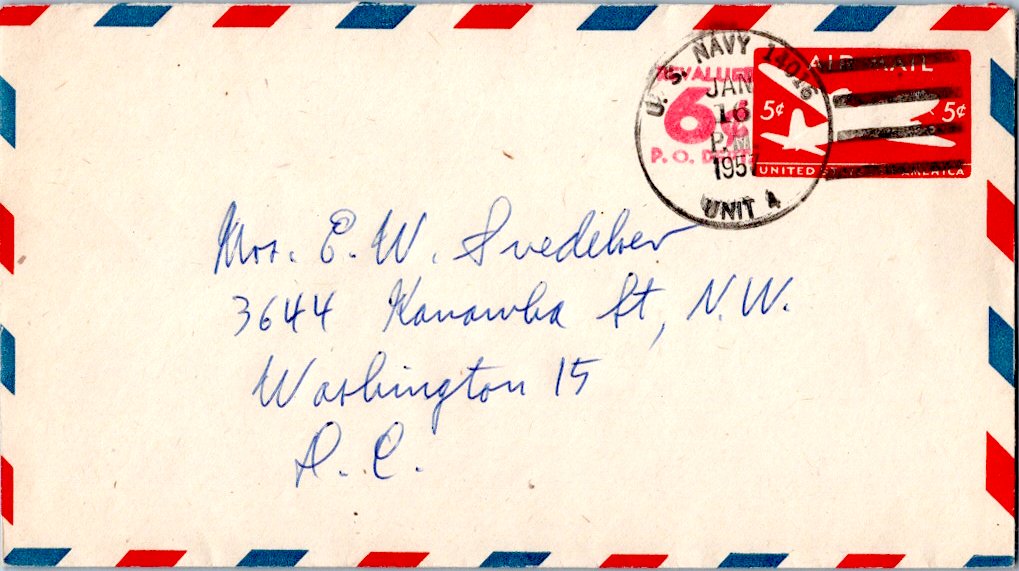 U. S. NAVY 14016
JAN
16
P.M.
1957
UNIT 4
REVALUED
6¢
P. O. DEPT.
AIR MAIL
5¢ 5¢
UNITED STATES OF AMERICA
Mrs. E. W. Svedeber
3644 Kanawha St, N.W.
Washington 15
D. C.